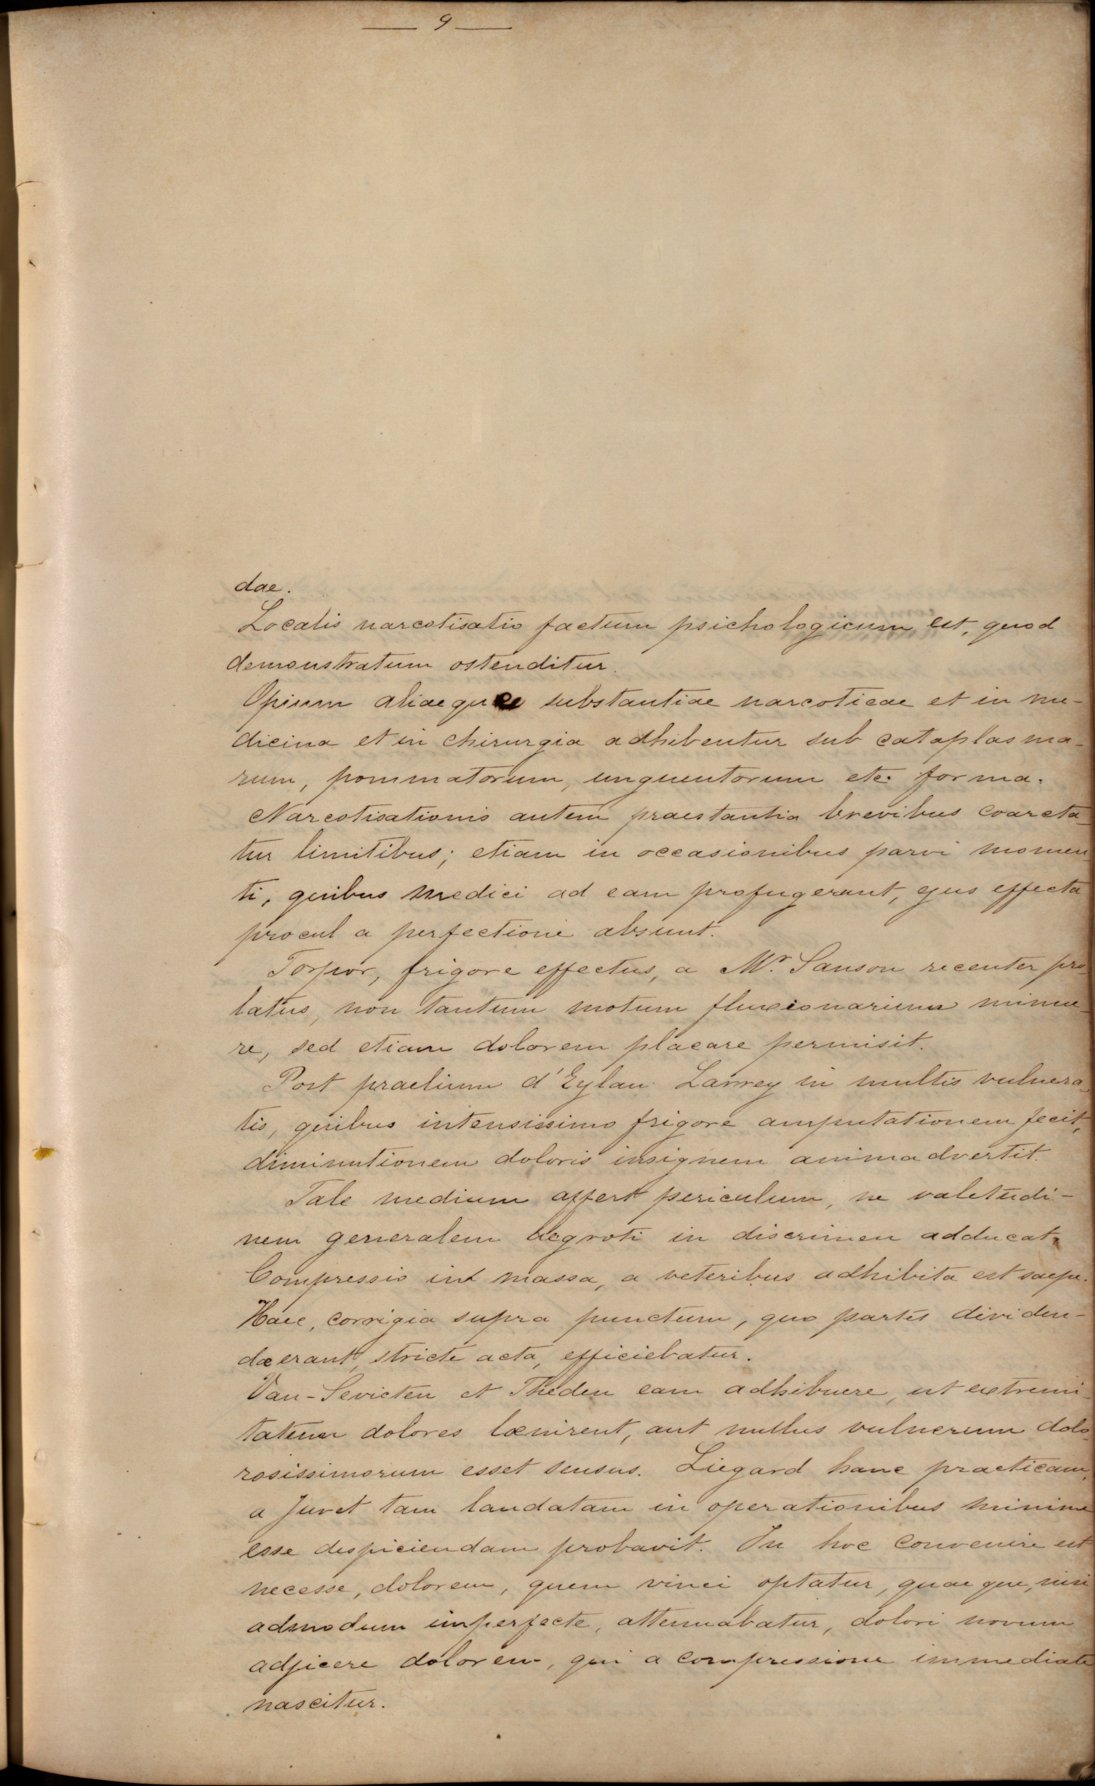 — 9 —
dae.
Localis narcotisatio factum psichologicum est, quod
demonstratum ostenditur.
Opium aliaeque substantiae narcoticae et in me-
dicina et in chirurgia adhibentur sub cataplasma-
rum, pommatorum, unguentorum etc. forma.
Narcotisationis autem praestantia brevibus coarcta-
tur limitibus; etiam in occasionibus parvi momen
ti, quibus medici ad eam profugerant, ejus effecta
procul a perfectione absunt.
Torpor, frigore effectus, a Mr. Sanson recenter pro
latus, non tantum motum fluxionarium minue-
re, sed etiam dolorem placare permisit.
Post praelium d'Eylau Larrey in multis vulnera-
tis, quibus intensissimo frigore amputationem fecit,
diminutionem doloris insignem animadvertit.
Tale medium affert periculum, ne valetudi-
nem generalem aegroti in discrimen adducat.
Compressio in massa, a veteribus adhibita est saepe.
Haec, corrigia supra punctum, quo partes dividen-
dae erant, stricte acta, efficiebatur.
Van-Sevicten et Theden eam adhibuere, ut extremi-
tatum dolores lœnirent, aut nullus vulnerum dolo-
rosissimorum esset sensus. Liegard hanc practicam,
a Juvet tam laudatam in operationibus minime
esse despiciendam probavit. In hoc convenire est
necesse, dolorem, quem vinci optatur, quaeque, nisi
admodum imperfecte, attenuabatur, dolori novum
adjicere dolorem, qui a compressione immediate
nascitur.